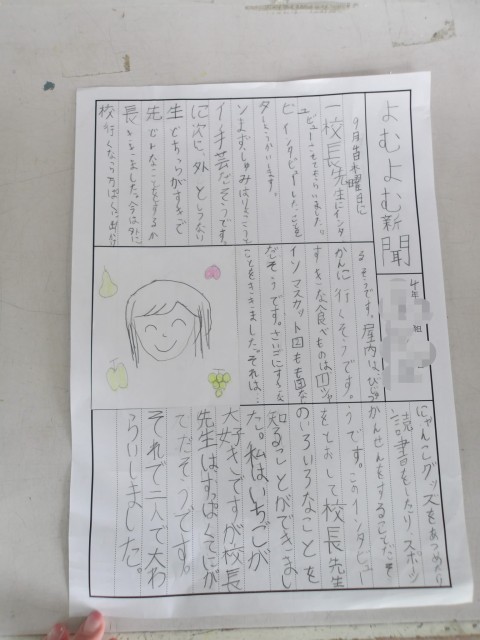 よむよむ新聞
4年 組
9月 日水曜日に
校長先生にインタ
ビューさせてもらいました。
インタビューしたことを
しょうかいします。
まず、しゅみはりょこうと
手芸だそうです。
次に、外としつない
生でどちらがすきで
先でどんなことをするか
長をききました。今は外に
校行くなら
るそうです。屋内は、びじゅつ
かんに行くそうです。
すきな食べものは①シャ
インマスカット②もも③な
だそうです。さいごにすきな
ことをききました。それは…
にゃんこグッズをあつめたり
読書をしたりスポーツ
かんせんをすることだそ
うです。このインタビュー
をとおして校長先生
のいろいろなことを
知ることができまし
た。私はいちごが
大好きですが校長
先生はすっぱくてにが
てだそうです。
それで二人で大わ
らいしました。